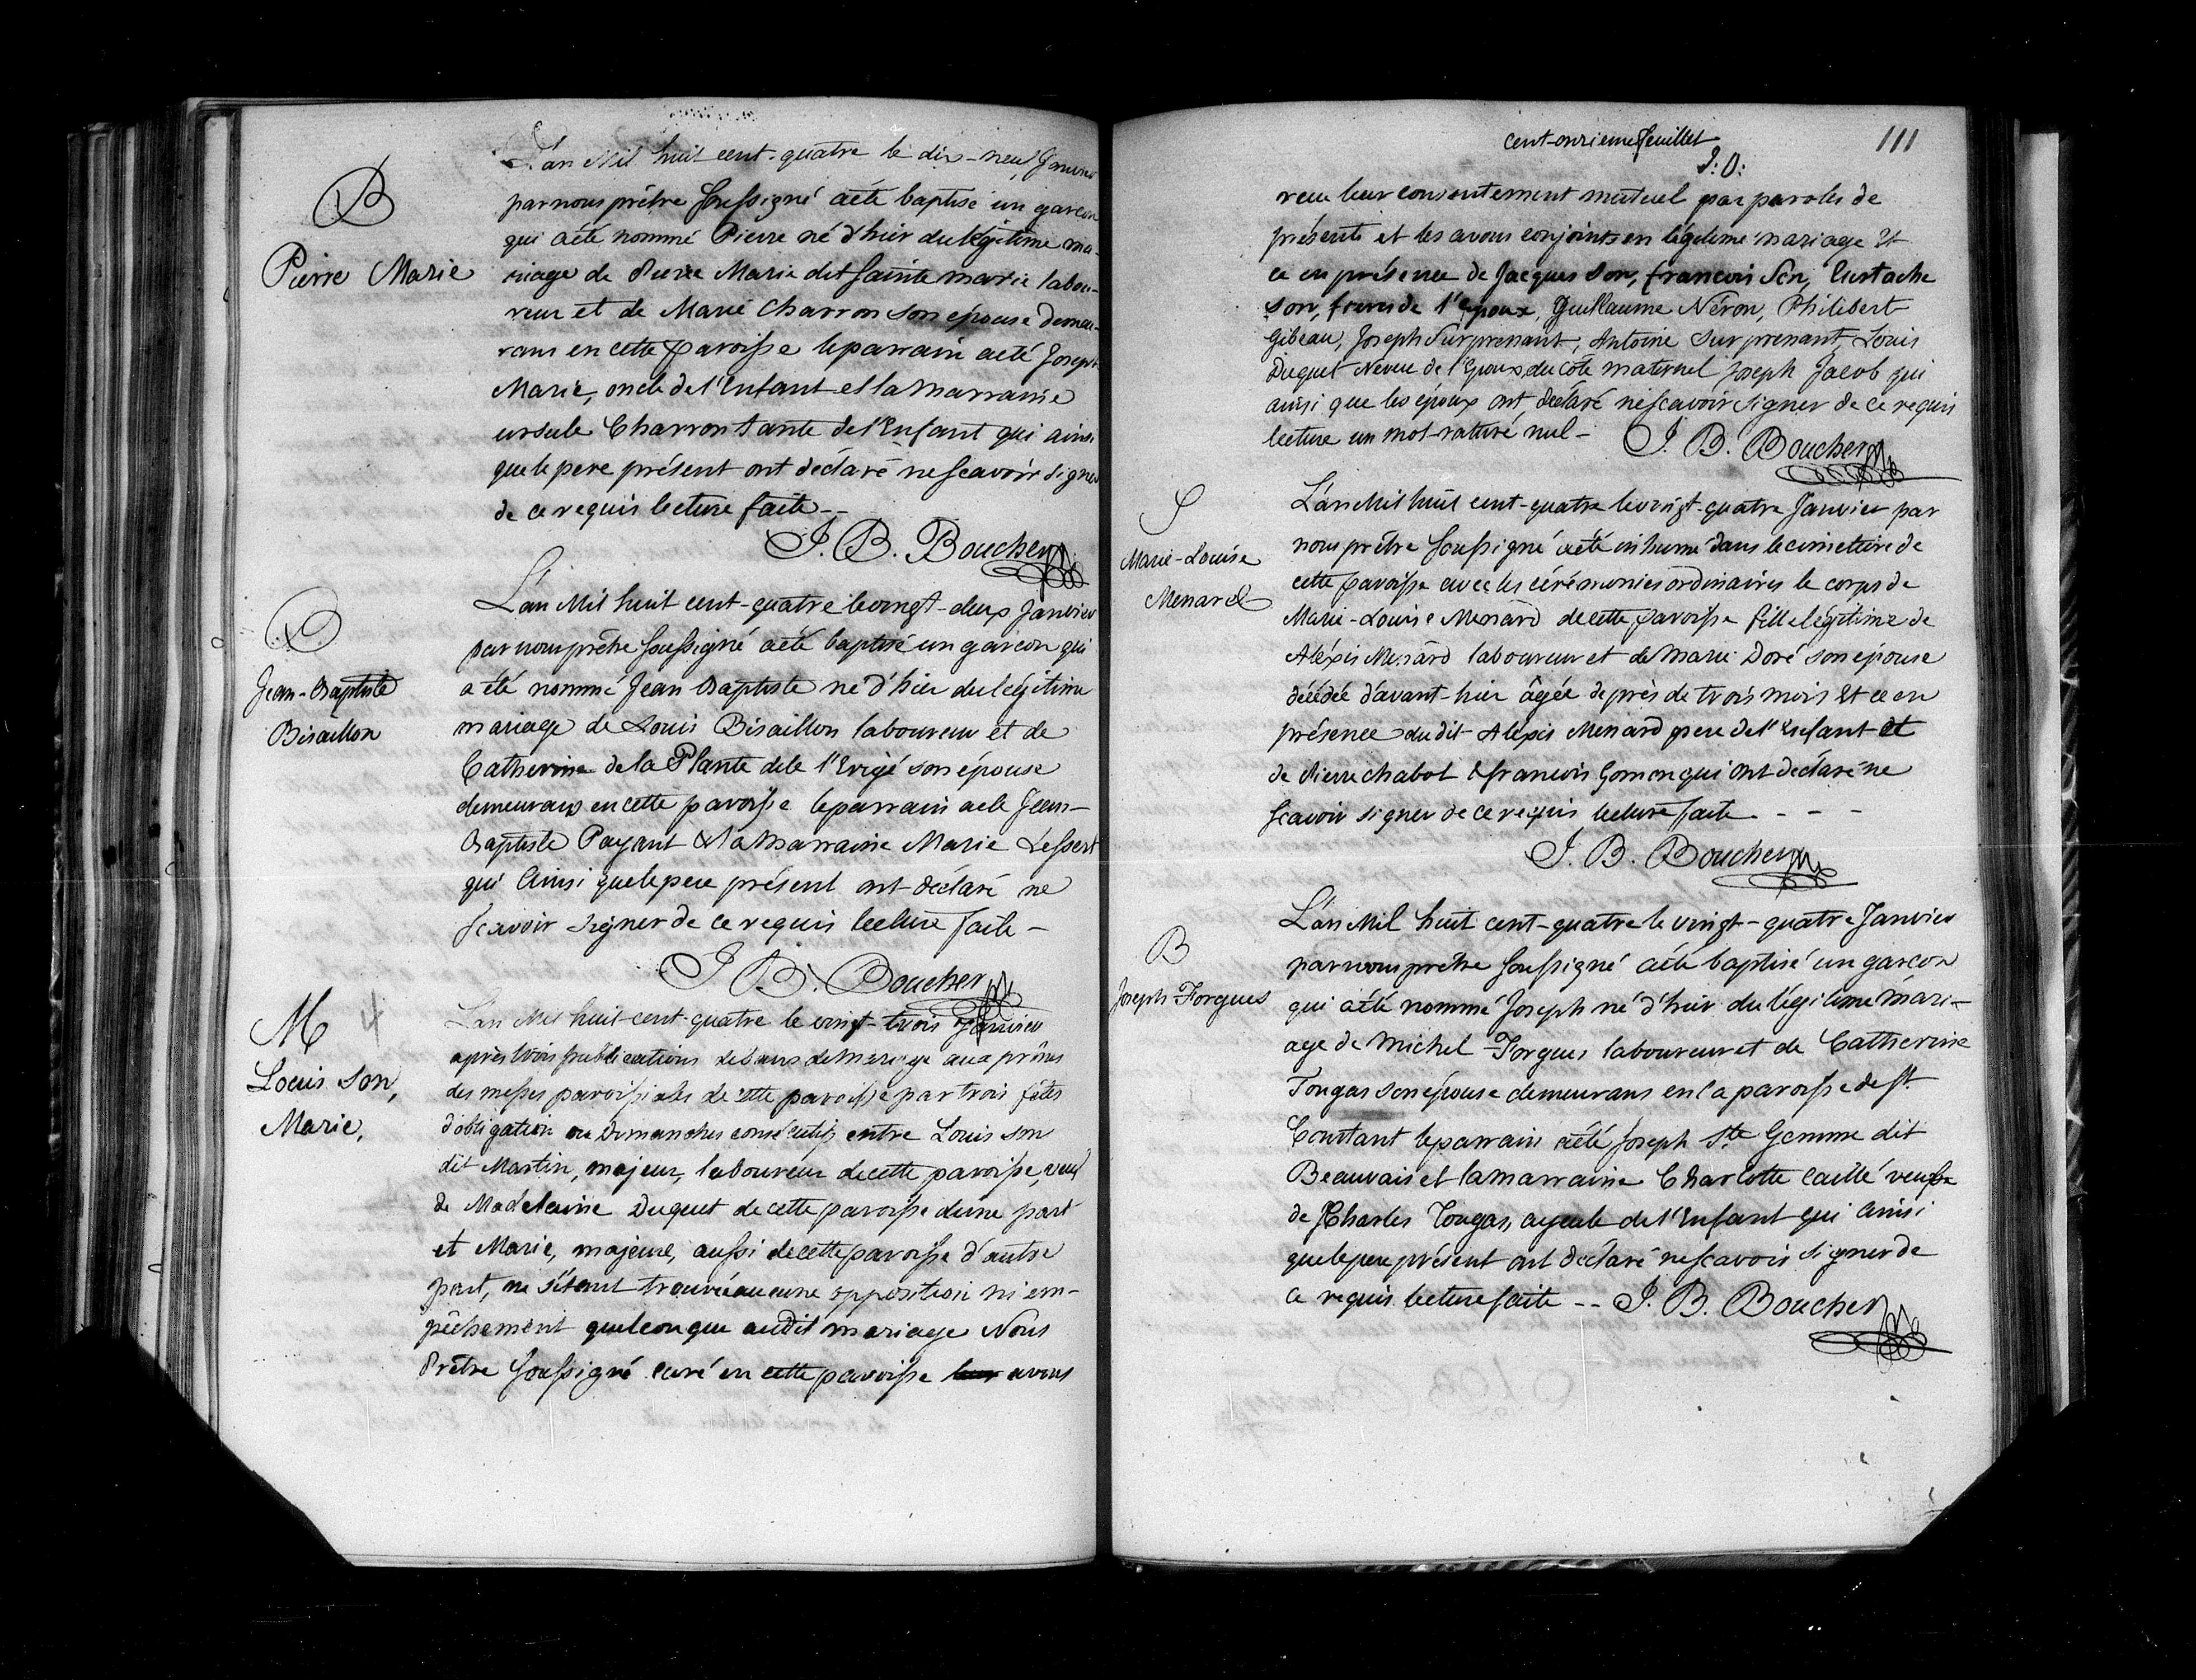 B
Pierre Marie
L'an Mil huit cent-quatre le dix-neuf Janvier
par nous prêtre soussigné a été baptisé un garcon
qui a été nommé Pierre né d'hier du légitime ma-
riage de Pierre Marie dit sainte marie labou-
reur et de Marie Charron son épouse demeu-
rans en cette paroisse le parrain a été Joseph
Marie, oncle de l'Enfant et la marraine
ursule Charron tante de l'Enfant qui ainsi
que le pere présent ont déclaré ne scavoir signer
de ce requis lecture faite --
J. B. Boucher
B
Jean-Baptiste
Bisaillon
L'an Mil huit cent-quatre le vingt-deux Janvier
par nous prêtre soussigné a été baptisé un garcon qui
a été nommé Jean Baptiste né d'hier du légitime
mariage de Louis Bisaillon laboureur et de
Catherine de la Plante dele l'Erigé son épouse
demeurans en cette paroisse le parrain a été Jean-
Baptiste Payant & la marraine Marie Lessert
qui ainsi que le pere présent ont déclaré ne
scavoir signer de ce requis lecture faite -
J. B. Boucher
M 4
Louis Son,
Marie,
L'an Mil huit-cent-quatre le vingt-trois Janvier
après trois publications de bans de mariage aux prônes
des messes paroissiales de cette paroisse par trois fêtes
d'obligation ou Dimanches consécutifs entre Louis son
dit Martin, majeur, laboureur de cette paroisse, veuf
de Madelaine Duquet de cette paroisse d'une part
et Marie, majeure, aussi de cette paroisse d'autre
part, ne s'étant trouvé aucune opposition ni em-
pêchement quelconque audit mariage Nous
Prêtre soussigné curé en cette paroisse leur avons
cent-onzieme feuillet 111
P: O:
recu leur consentement mutuel par paroles de
présents et les avons conjoints en légitime mariage Et
ce en présence de Jacques Son, francois Son, Eustache
Son, freres de l'epoux, Guillaume Néron, Philibert
Gibeau, Joseph Surprenant, Antoine Surprenant, Louis
Duquet Neveu de l'Epoux du côté maternel Joseph Jacob qui
ainsi que les époux ont déclaré ne scavoir signer de ce requis
lecture un mot raturé nul - J. B. Boucher
S
Marie-Louise
Menard
L'an Mil huit cent-quatre le vingt-quatre Janvier par
nous prêtre soussigné a été inhumé dans le cimetiere de
cette paroisse avec les cérémonies ordinaires le corps de
Marie-Louise Menard de cette paroisse fille légitime de
Aléxis Menard laboureur et de Marie Doré son épouse
décédée d'avant-hier âgée de près de trois mois Et ce en
présence du dit Alexis Menard pere de l'Enfant et
de Pierre chabot & francois Gomon qui ont déclaré ne
scavoir signer de ce requis lecture faite. - - -
J. B. Boucher
B
Joseph Forgues
L'an Mil huit cent-quatre le vingt-quatre Janvier
par nous prêtre soussigné a été baptisé un garcon
qui a été nommé Joseph né d'hier du légitime mari-
age de Michel Forgues laboureur et de Catherine
Tougas son épouse demeurans en la paroisse de St.
Constant le parrain a été Joseph Ste Gemme dit
Beauvais et la marraine Charlotte caillé veuve
de Charles Tougas, ayeule de l'Enfant qui ainsi
que le pere présent ont déclaré ne scavoir signer de
ce requis lecture faite -- J. B. Boucher